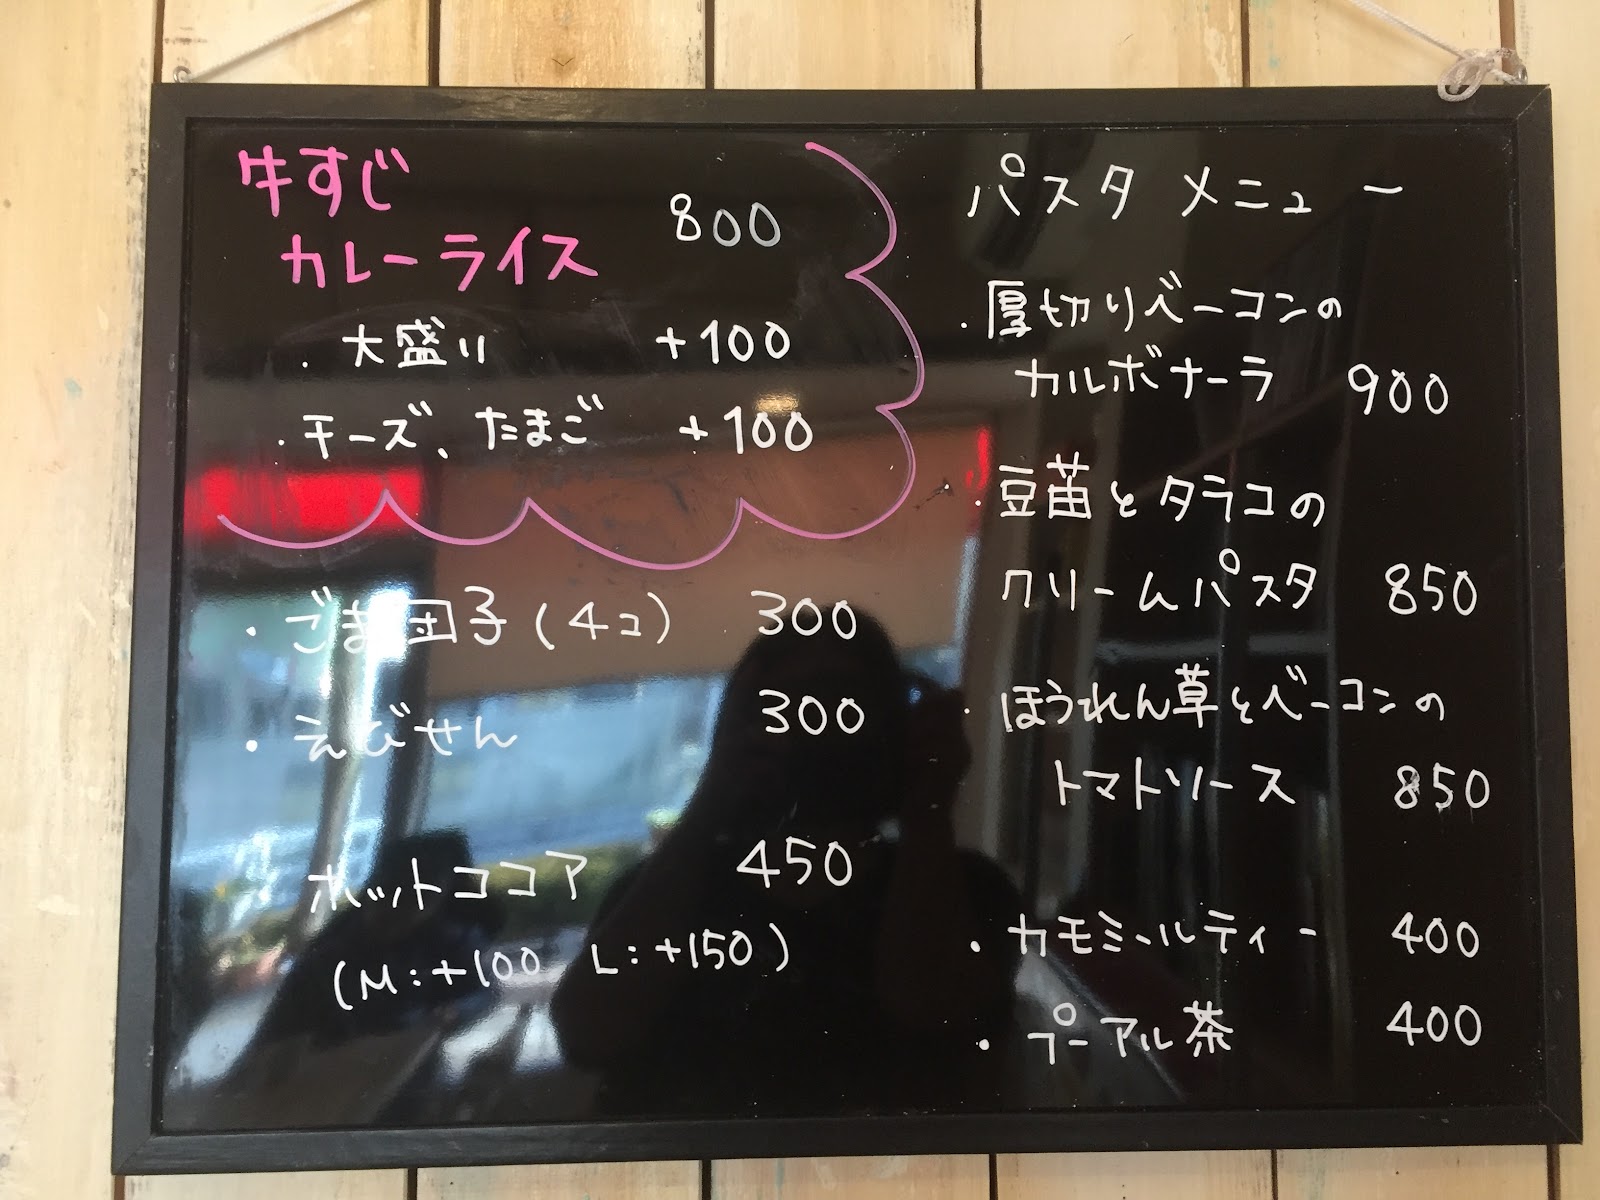 牛すじ
カレーライス 800
・大盛り +100
・チーズ、たまご +100
・ごま団子(4コ) 300
・えびせん 300
・ホットココア 450
(M:+100 L:+150)
パスタ メニュー
・厚切りベーコンの
カルボナーラ 900
・豆苗とタラコの
クリームパスタ 850
・ほうれん草とベーコンの
トマトソース 850
・カモミールティー 400
・プーアル茶 400